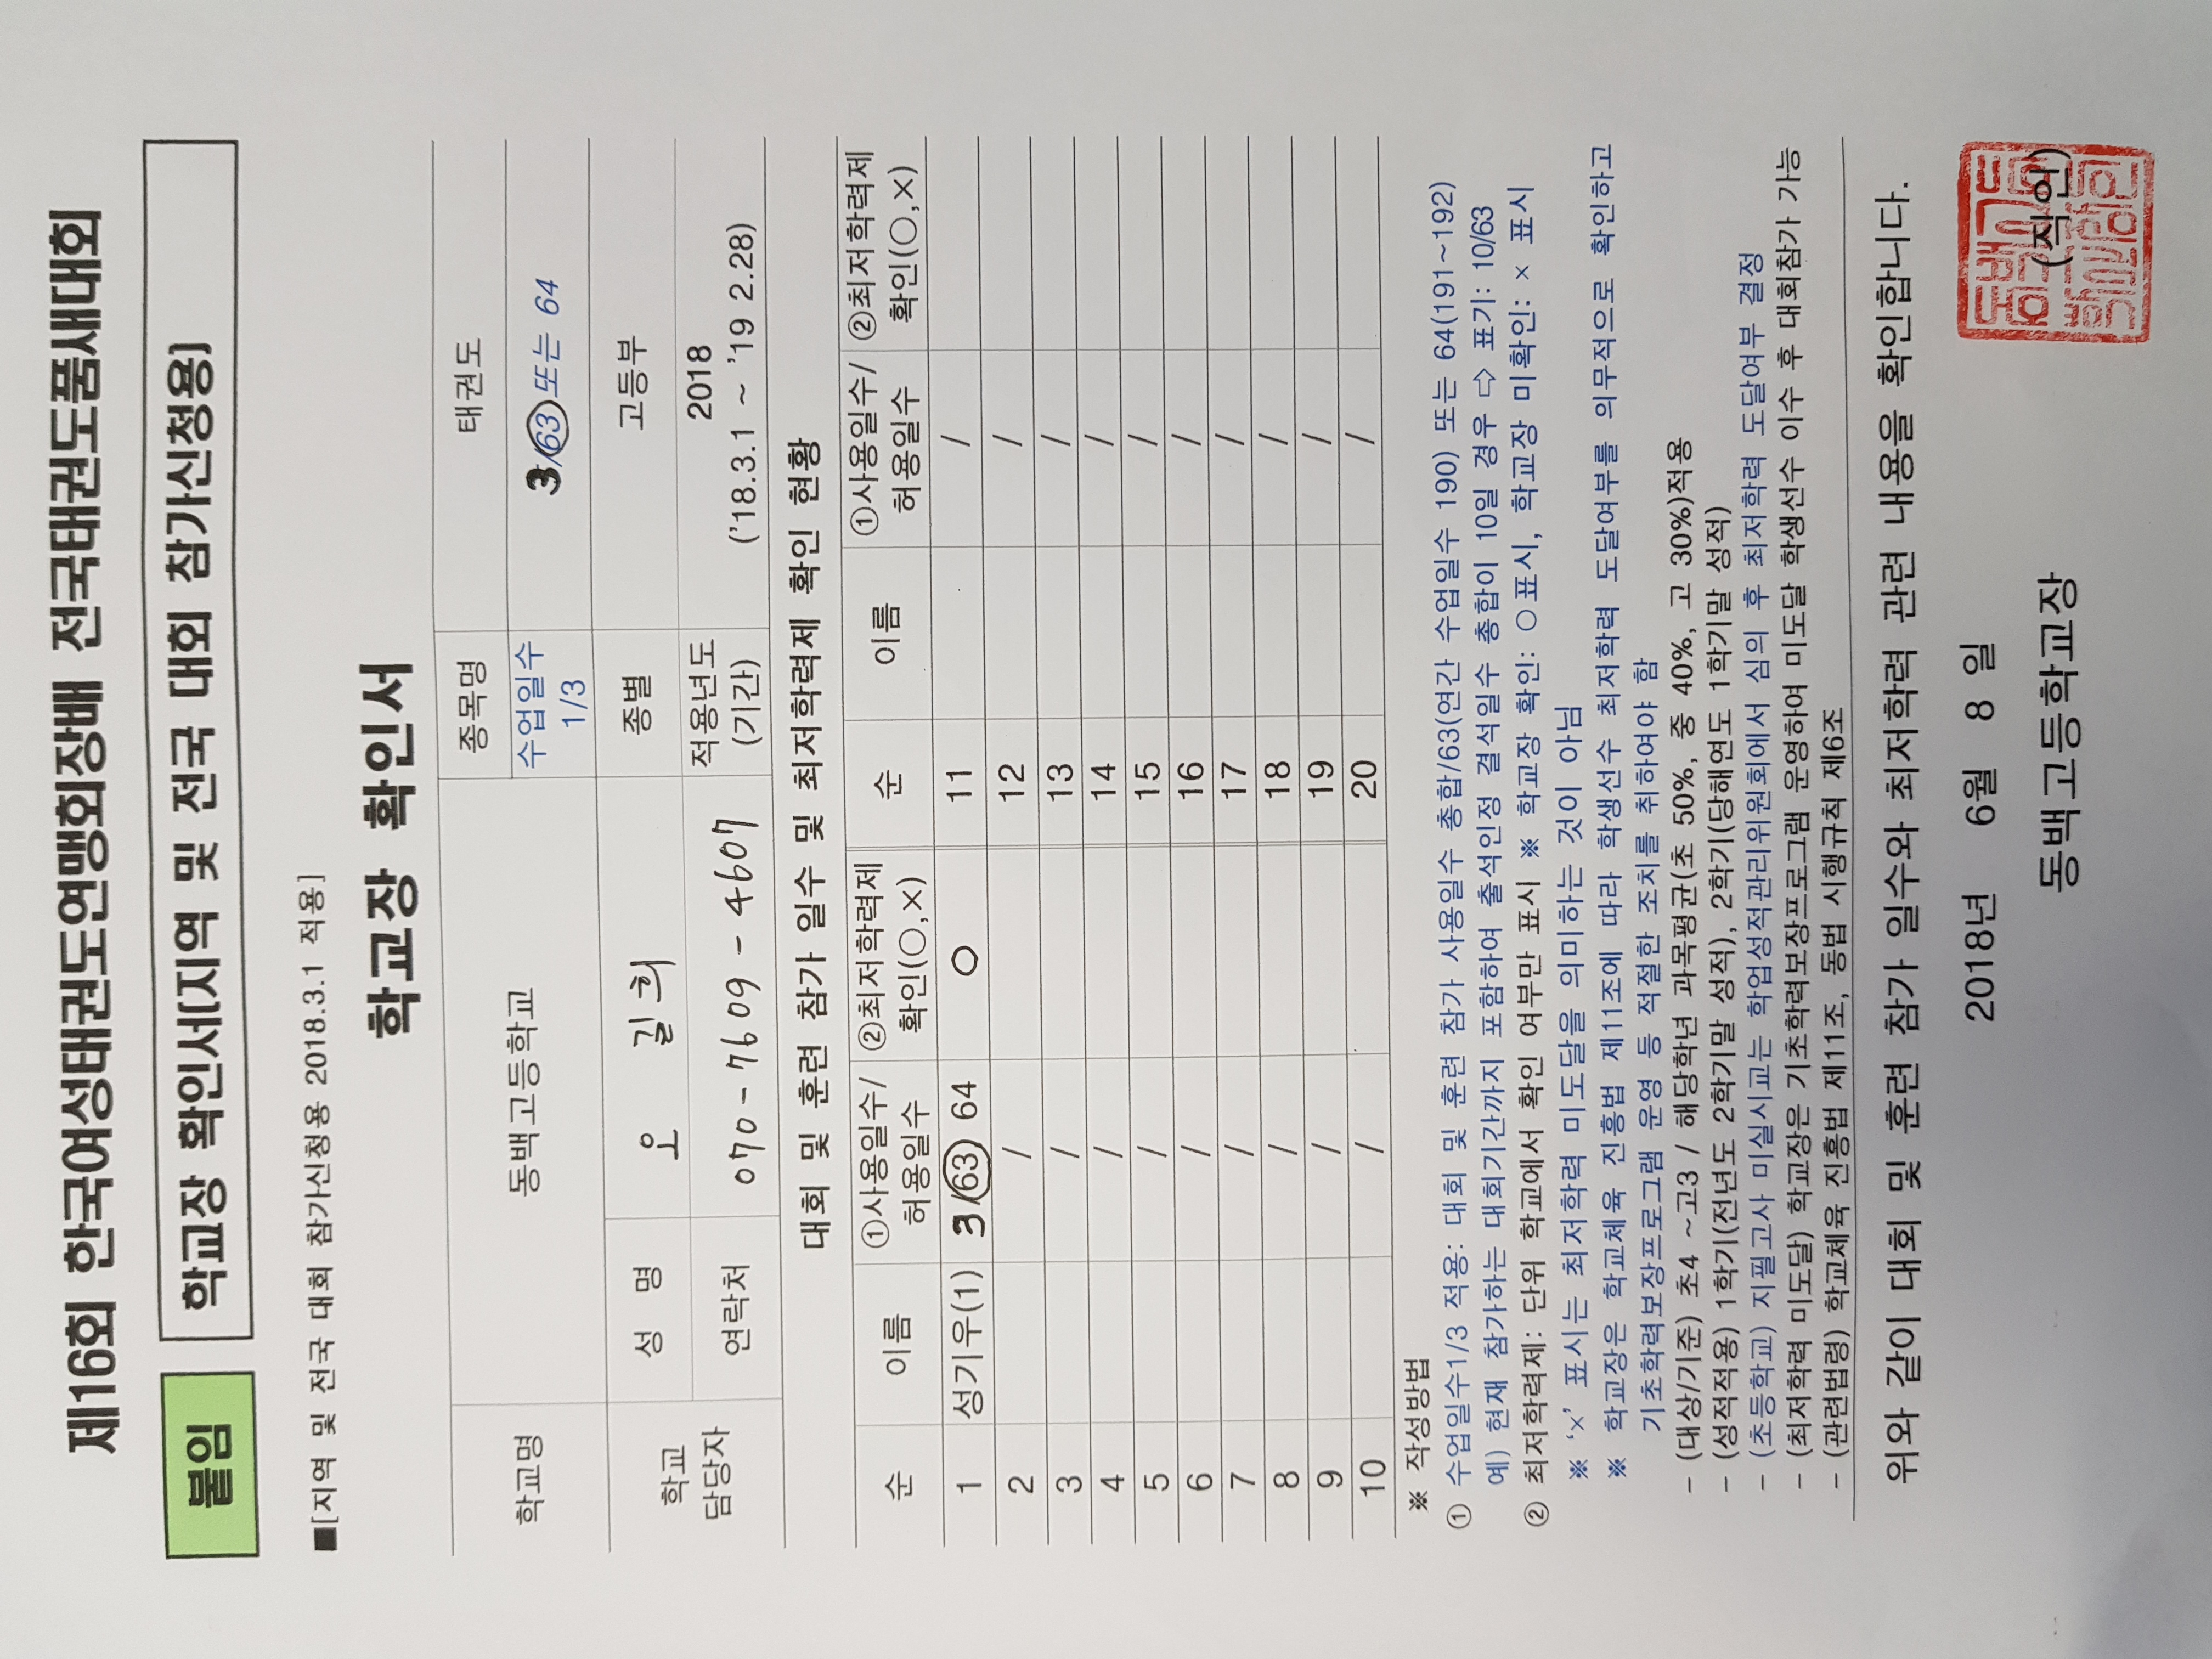 제16회 한국여성태권도연맹회장배 전국태권도품새대회
붙임 학교장 확인서(지역 및 전국 대회 참가신청용)
■[지역 및 전국 대회 참가신청용 2018.3.1 적용]
학교장 확인서
학교명 동백고등학교 종목명 태권도
수업일수 1/3 3/63또는 64
학교 담당자 성 명 오 길 희 종별 고등부
연락처 070-7609-4607 적용년도 (기간) 2018 ('18.3.1 ~ '19 2.28)
대회 및 훈련 참가 일수 및 최저학력제 확인 현황
순 이름 ①사용일수/허용일수 ②최저학력제 확인(○,×) 순 이름 ①사용일수/허용일수 ②최저학력제 확인(○,×)
1 성기우(1) 3/63, 64 ○ 11 /
2 / 12 /
3 / 13 /
4 / 14 /
5 / 15 /
6 / 16 /
7 / 17 /
8 / 18 /
9 / 19 /
10 / 20 /
※ 작성방법
① 수업일수1/3 적용: 대회 및 훈련 참가 사용일수 총합/63(연간 수업일수 190) 또는 64(191~192)
예) 현재 참가하는 대회기간까지 포함하여 출석인정 결석일수 총합이 10일 경우 ⇨ 표기: 10/63
② 최저학력제: 단위 학교에서 확인 여부만 표시 ※ 학교장 확인: ○표시, 학교장 미확인: × 표시
※ '×' 표시는 최저학력 미도달을 의미하는 것이 아님
※ 학교장은 학교체육 진흥법 제11조에 따라 학생선수 최저학력 도달여부를 의무적으로 확인하고
기초학력보장프로그램 운영 등 적절한 조치를 취하여야 함
- (대상/기준) 초4 ~고3 / 해당학년 과목평균(초 50%, 중 40%, 고 30%)적용
- (성적적용) 1학기(전년도 2학기말 성적), 2학기(당해연도 1학기말 성적)
- (초등학교) 지필고사 미실시교는 학업성적관리위원회에서 심의 후 최저학력 도달여부 결정
- (최저학력 미도달) 학교장은 기초학력보장프로그램 운영하여 미도달 학생선수 이수 후 대회참가 가능
- (관련법령) 학교체육 진흥법 제11조, 동법 시행규칙 제6조
위와 같이 대회 및 훈련 참가 일수와 최저학력 관련 내용을 확인합니다.
2018년 6월 8 일
동백고등학교장 (직인)
동백고등학교장인